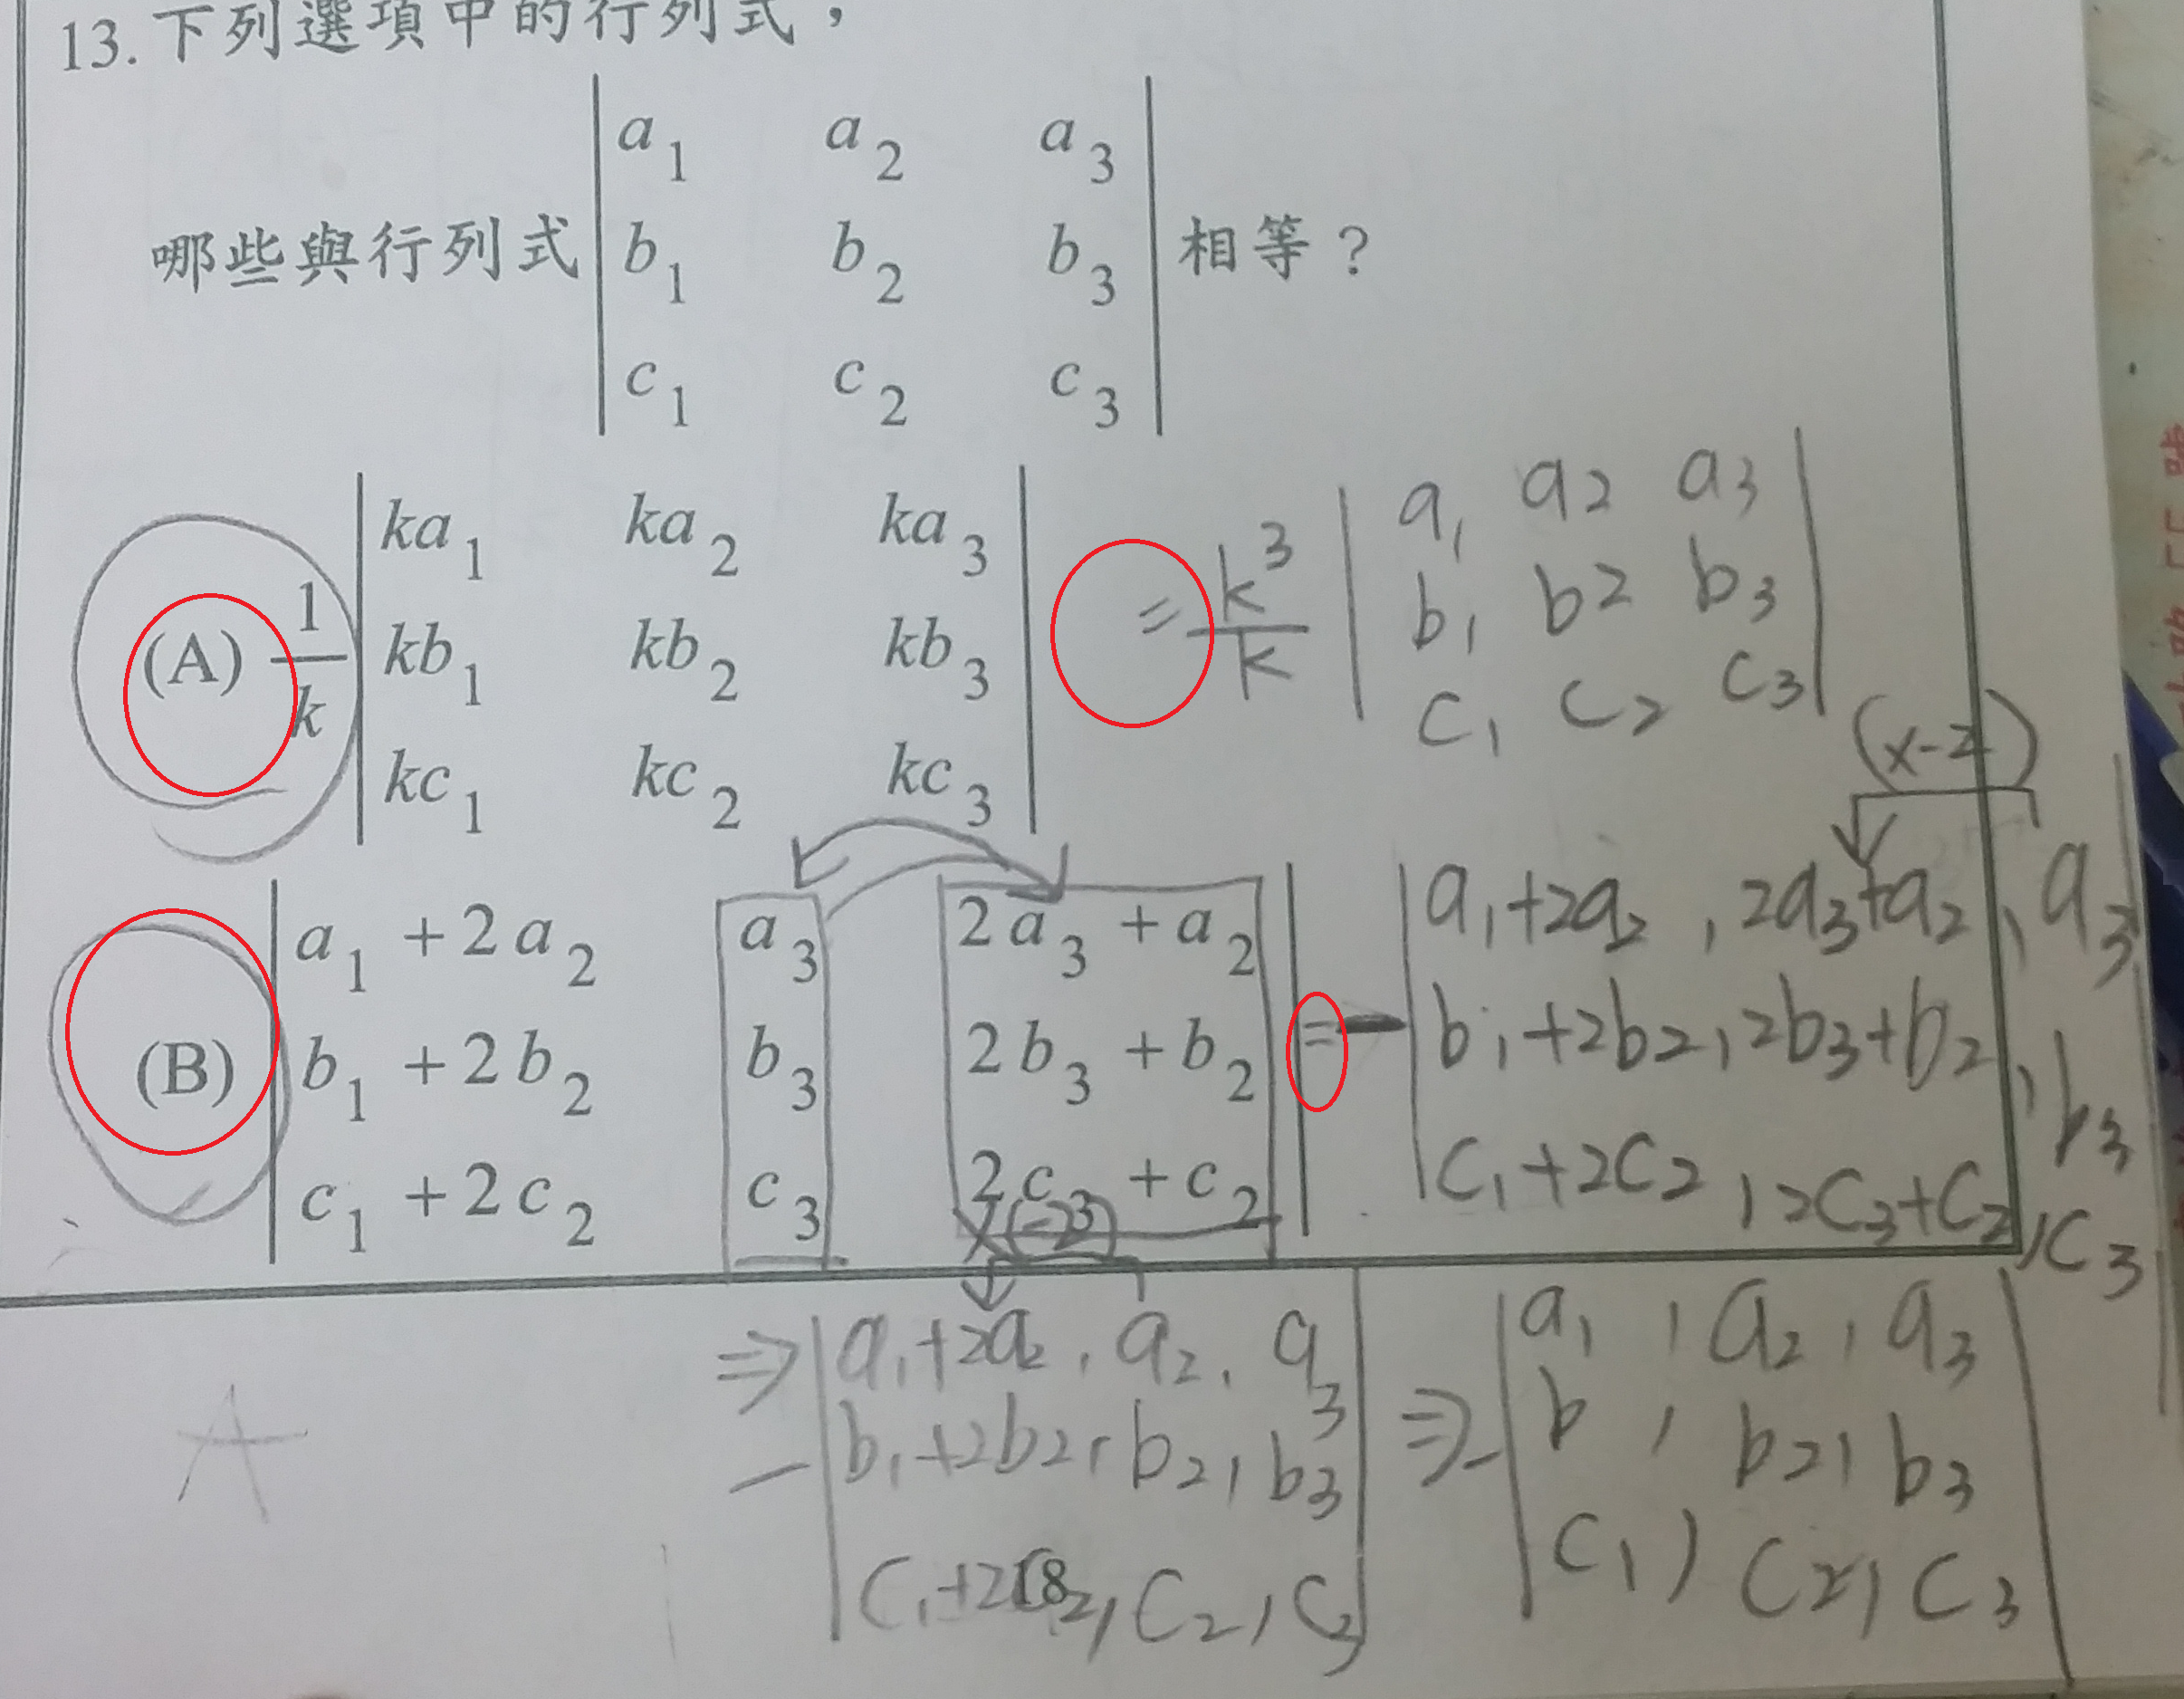 13. 下列選項中的行列式，
a₁ a₂ a₃
哪些與行列式 b₁ b₂ b₃ 相等？
c₁ c₂ c₃
ka₁ ka₂ ka₃
(A) 1/k kb₁ kb₂ kb₃
kc₁ kc₂ kc₃
a₁ a₂ a₃
= k³/k b₁ b₂ b₃
c₁ c₂ c₃
a₁ + 2a₂ a₃ 2a₃ + a₂
(B) b₁ + 2b₂ b₃ 2b₃ + b₂
c₁ + 2c₂ c₃ 2c₃ + c₂
(x-2)
a₁+2a₂ , 2a₃+a₂ , a₃
= - b₁+2b₂ , 2b₃+b₂ , b₃
c₁+2c₂ , 2c₃+c₂ , c₃
⇒ a₁+2a₂ , a₂ , a₃
- b₁+2b₂ , b₂ , b₃
c₁+2 , c₂ , c₃
a₁ , a₂ , a₃
⇒ - b , b₂ , b₃
c₁ , c₂ , c₃
A